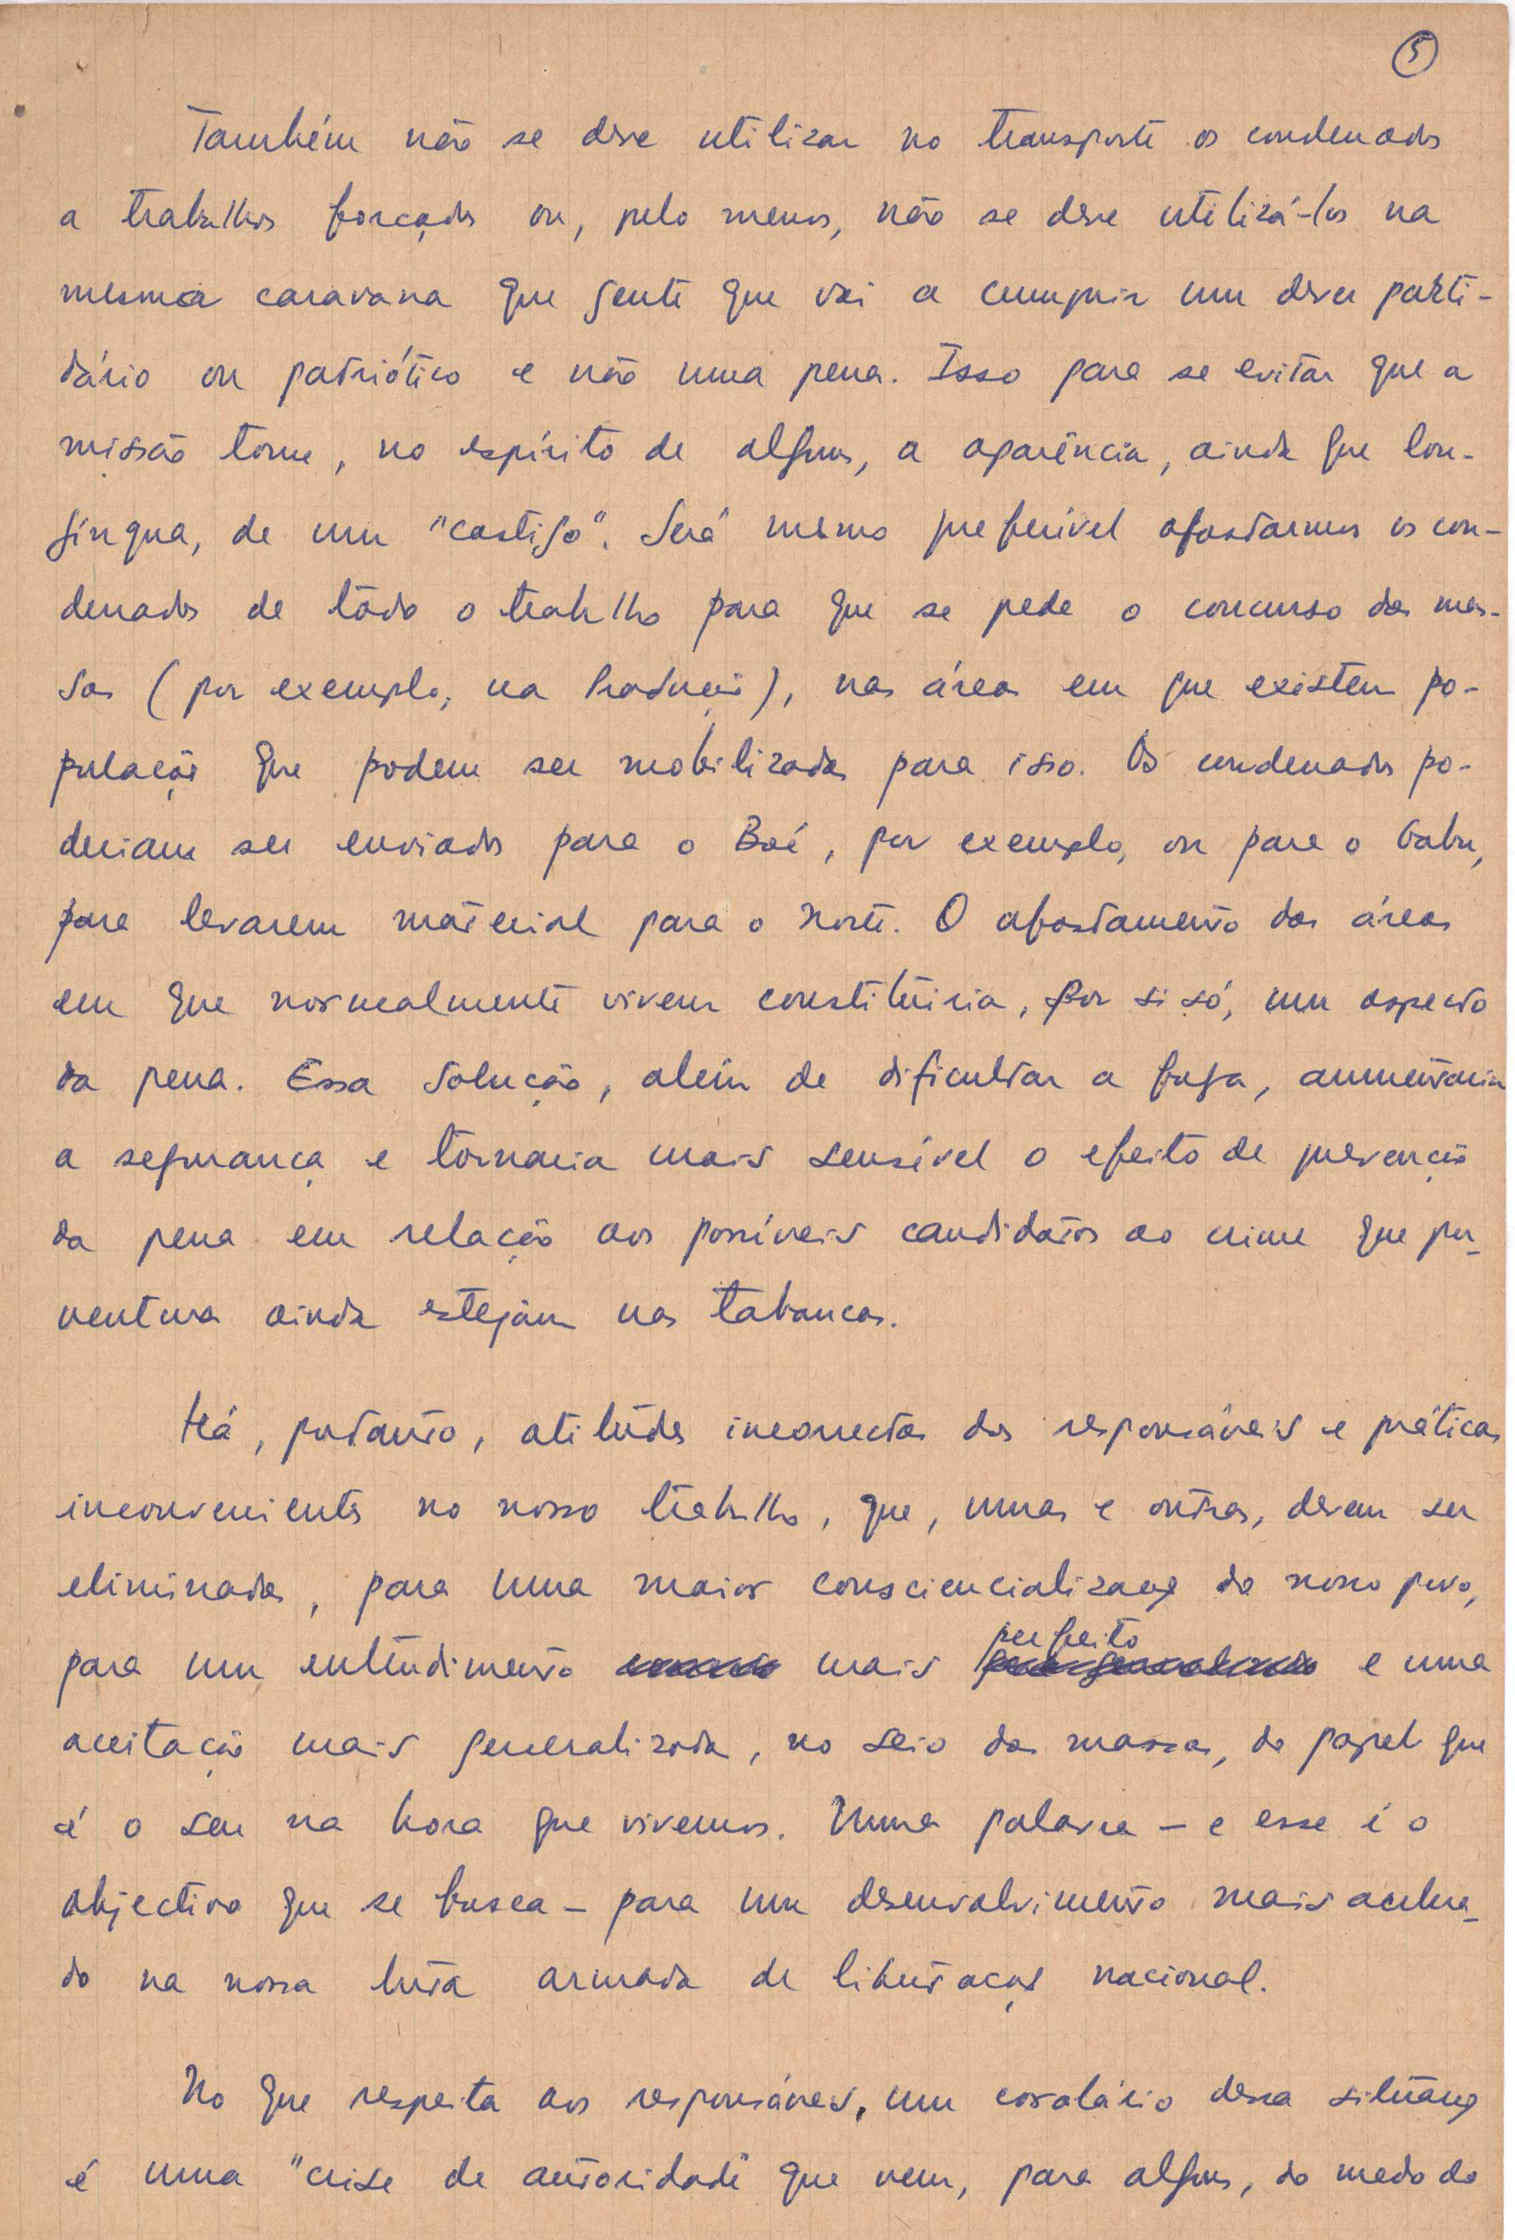 5
Também não se deve utilizar no transporte os condenados
a trabalhos forçados ou, pelo menos, não se deve utilizá-los na
mesma caravana que gente que vai a cumprir um dever parti-
dário ou patriótico e não uma pena. Isso para se evitar que a
missão tome, no espírito de alguns, a aparência, ainda que lon-
gínqua, de um "castigo". Será mesmo preferível afastarmos os con-
denados de todo o trabalho para que se pede o concurso das mas-
sas (por exemplo, na Produção), nas áreas em que existem po-
pulação que podem ser mobilizadas para isso. Os condenados po-
deriam ser enviados para o Boé, por exemplo, ou para o Gabu,
para levarem material para o Norte. O afastamento das áreas
em que normalmente vivem constituiria, por si só, um aspecto
da pena. Essa solução, além de dificultar a fuga, aumentaria
a segurança e tornaria mais sensível o efeito de prevenção
da pena em relação aos possíveis candidatos ao crime que por-
ventura ainda estejam nas tabancas.
Há, portanto, atitudes incorrectas dos responsáveis e práticas
inconvenientes no nosso trabalho, que, umas e outras, devem ser
eliminadas, para uma maior consciencialização do nosso povo,
para um entendimento mais perfeito e uma
aceitação mais generalizada, no seio das massas, do papel que
é o seu na hora que vivemos. Numa palavra - e esse é o
objectivo que se busca - para um desenvolvimento mais acelera-
do na nossa luta armada de libertação nacional.
No que respeita aos responsáveis, um corolário dessa situação
é uma "crise de autoridade" que vem, para alguns, do medo do